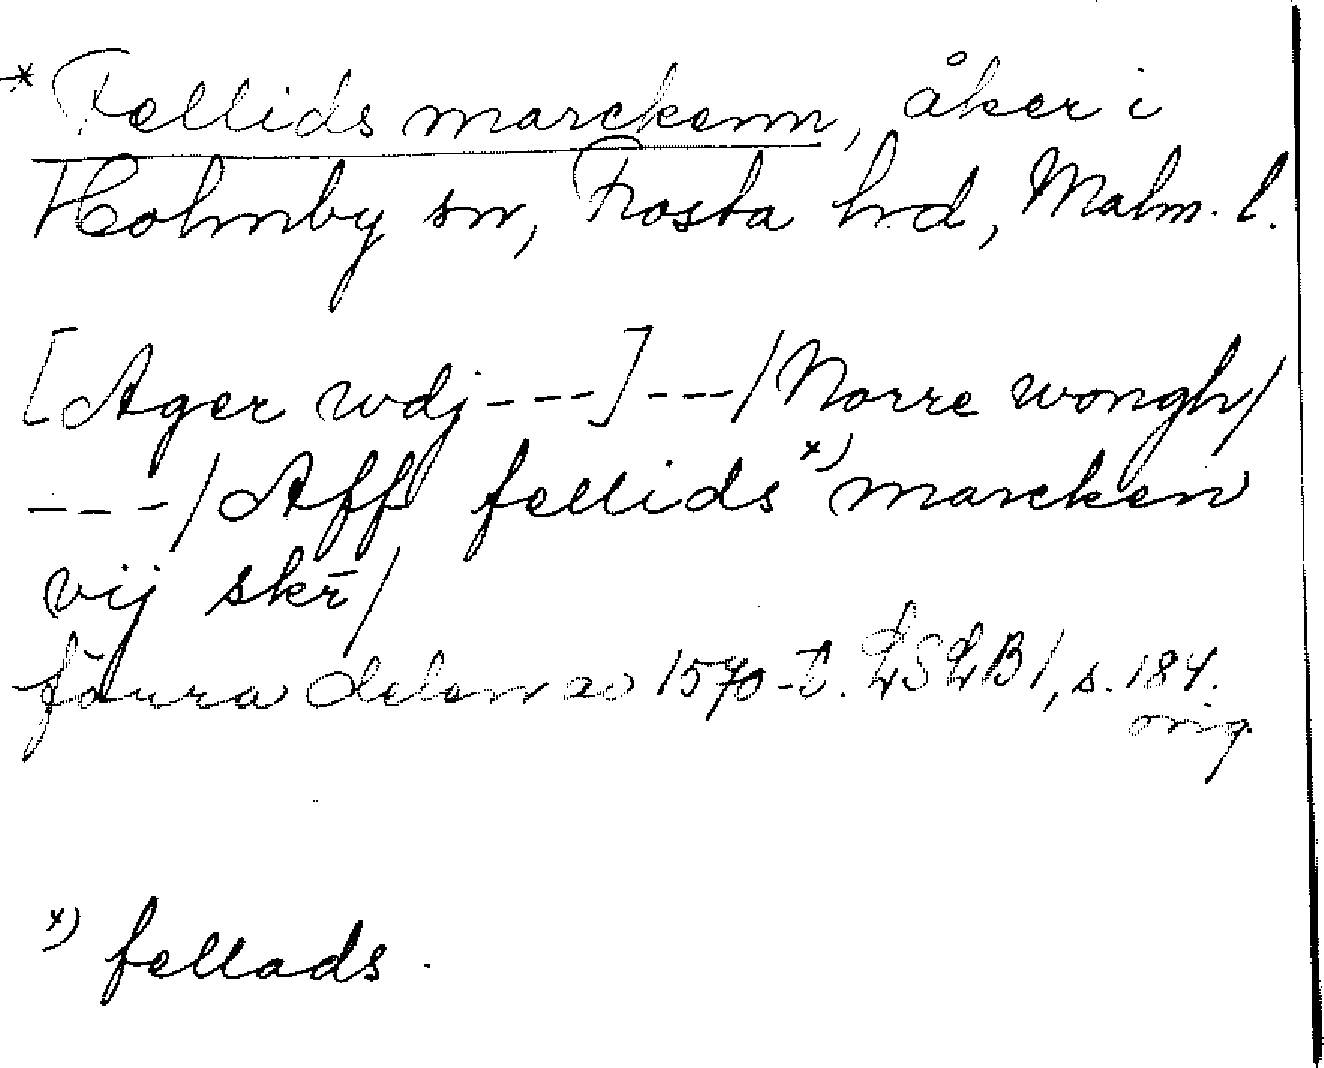 * Fellids marckenn, åker i
Holmby sn, Frosta hd, Malm. l.
[Ager wdj---]---/Norre wongh/
---/Aff fellids x) marcken
vij skr̄/
förra delen av 1570-t. LSLB1, s. 184.
orig.
x) fellads.